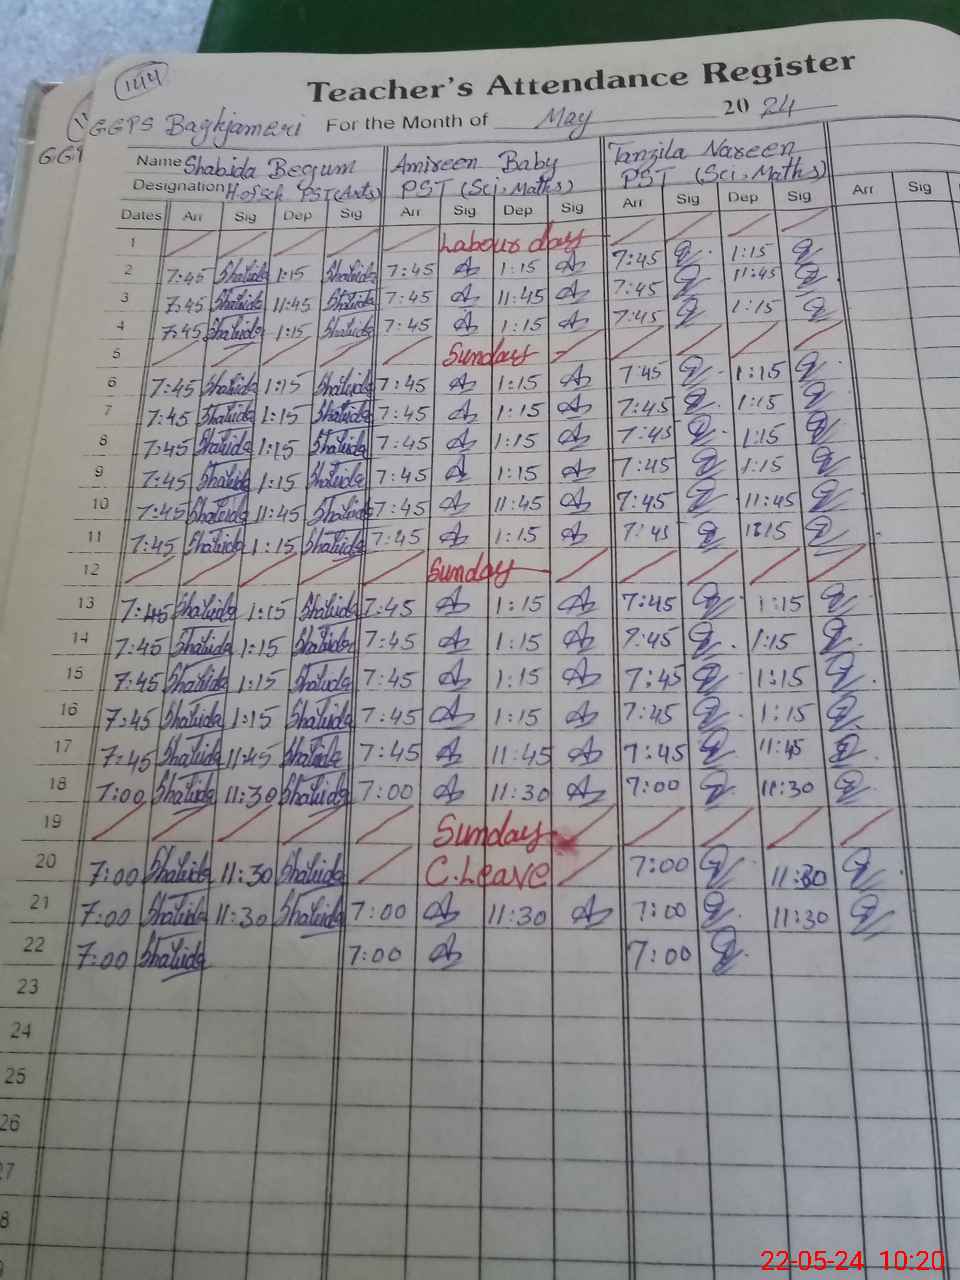 144
Teacher's Attendance Register
GGPS Baghjameri For the Month of May 2024
GGP
Name Shahida Begum Amireen Baby Tanzila Nareen
Designation H of Sch PST (Arts) PST (Sci, Maths) PST (Sci, Maths)
Dates Arr Sig Dep Sig Arr Sig Dep Sig Arr Sig Dep Sig Arr Sig
1 Labour day
2 7:45 Shahida 1:15 Shahida 7:45 1:15 7:45 1:15
3 7:45 Shahida 11:45 Shahida 7:45 11:45 7:45 11:45
4 7:45 Shahida 1:15 Shahida 7:45 1:15 7:45 1:15
5 Sunday
6 7:45 Shahida 1:15 Shahida 7:45 1:15 7:45 1:15
7 7:45 Shahida 1:15 Shahida 7:45 1:15 7:45 1:15
8 7:45 Shahida 1:15 Shahida 7:45 1:15 7:45 1:15
9 7:45 Shahida 1:15 Shahida 7:45 1:15 7:45 1:15
10 7:45 Shahida 11:45 Shahida 7:45 11:45 7:45 11:45
11 7:45 Shahida 1:15 Shahida 7:45 1:15 7:45 1:15
12 Sunday
13 7:45 Shahida 1:15 Shahida 7:45 1:15 7:45 1:15
14 7:45 Shahida 1:15 Shahida 7:45 1:15 7:45 1:15
15 7:45 Shahida 1:15 Shahida 7:45 1:15 7:45 1:15
16 7:45 Shahida 1:15 Shahida 7:45 1:15 7:45 1:15
17 7:45 Shahida 11:45 Shahida 7:45 11:45 7:45 11:45
18 7:00 Shahida 11:30 Shahida 7:00 11:30 7:00 11:30
19 Sunday
20 7:00 Shahida 11:30 Shahida C.Leave 7:00 11:30
21 7:00 Shahida 11:30 Shahida 7:00 11:30 7:00 11:30
22 7:00 Shahida 7:00 7:00
23
24
25
26
27
8
22-05-24 10:20